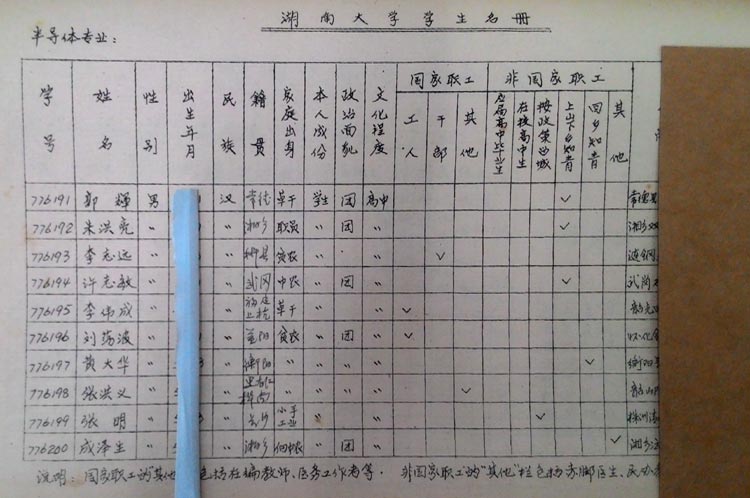 湖南大学学生名册
半导体专业：
学号 姓名 性别 出生年月 民族 籍贯 家庭出身 本人成份 政治面貌 文化程度 国家职工 非国家职工
工人 干部 其他 应届高中毕业生 在校高中生 按政策留城 上山下乡知青 回乡知青 其他
776191 郭辉 男 汉 常德 革干 学生 团 高中 ✓ 常德
776192 朱洪亮 〃 〃 湘乡 职员 〃 团 〃 ✓ 湘乡
776193 李志远 〃 〃 郴县 贫农 〃 〃 ✓ 涟钢
776194 许志敏 〃 〃 武冈 中农 〃 团 〃 ✓ 武岗
776195 李伟成 〃 〃 福建上杭 革干 〃 〃 ✓
776196 刘荡波 〃 〃 益阳 贫农 〃 团 〃 ✓
776197 黄大华 〃 〃 衡阳 〃 〃 〃 ✓ 衡阳
776198 张洪义 〃 〃 黑龙江桦南 〃 〃 〃 ✓
776199 张明 〃 〃 长沙 小手工业 〃 〃 ✓ 株洲
776200 成泽生 〃 〃 湘乡 〃 团 〃 ✓ 湘乡
说明：国家职工的"其他"包括在编教师、医务工作者等。 非国家职工的"其他"栏包括赤脚医生、民办